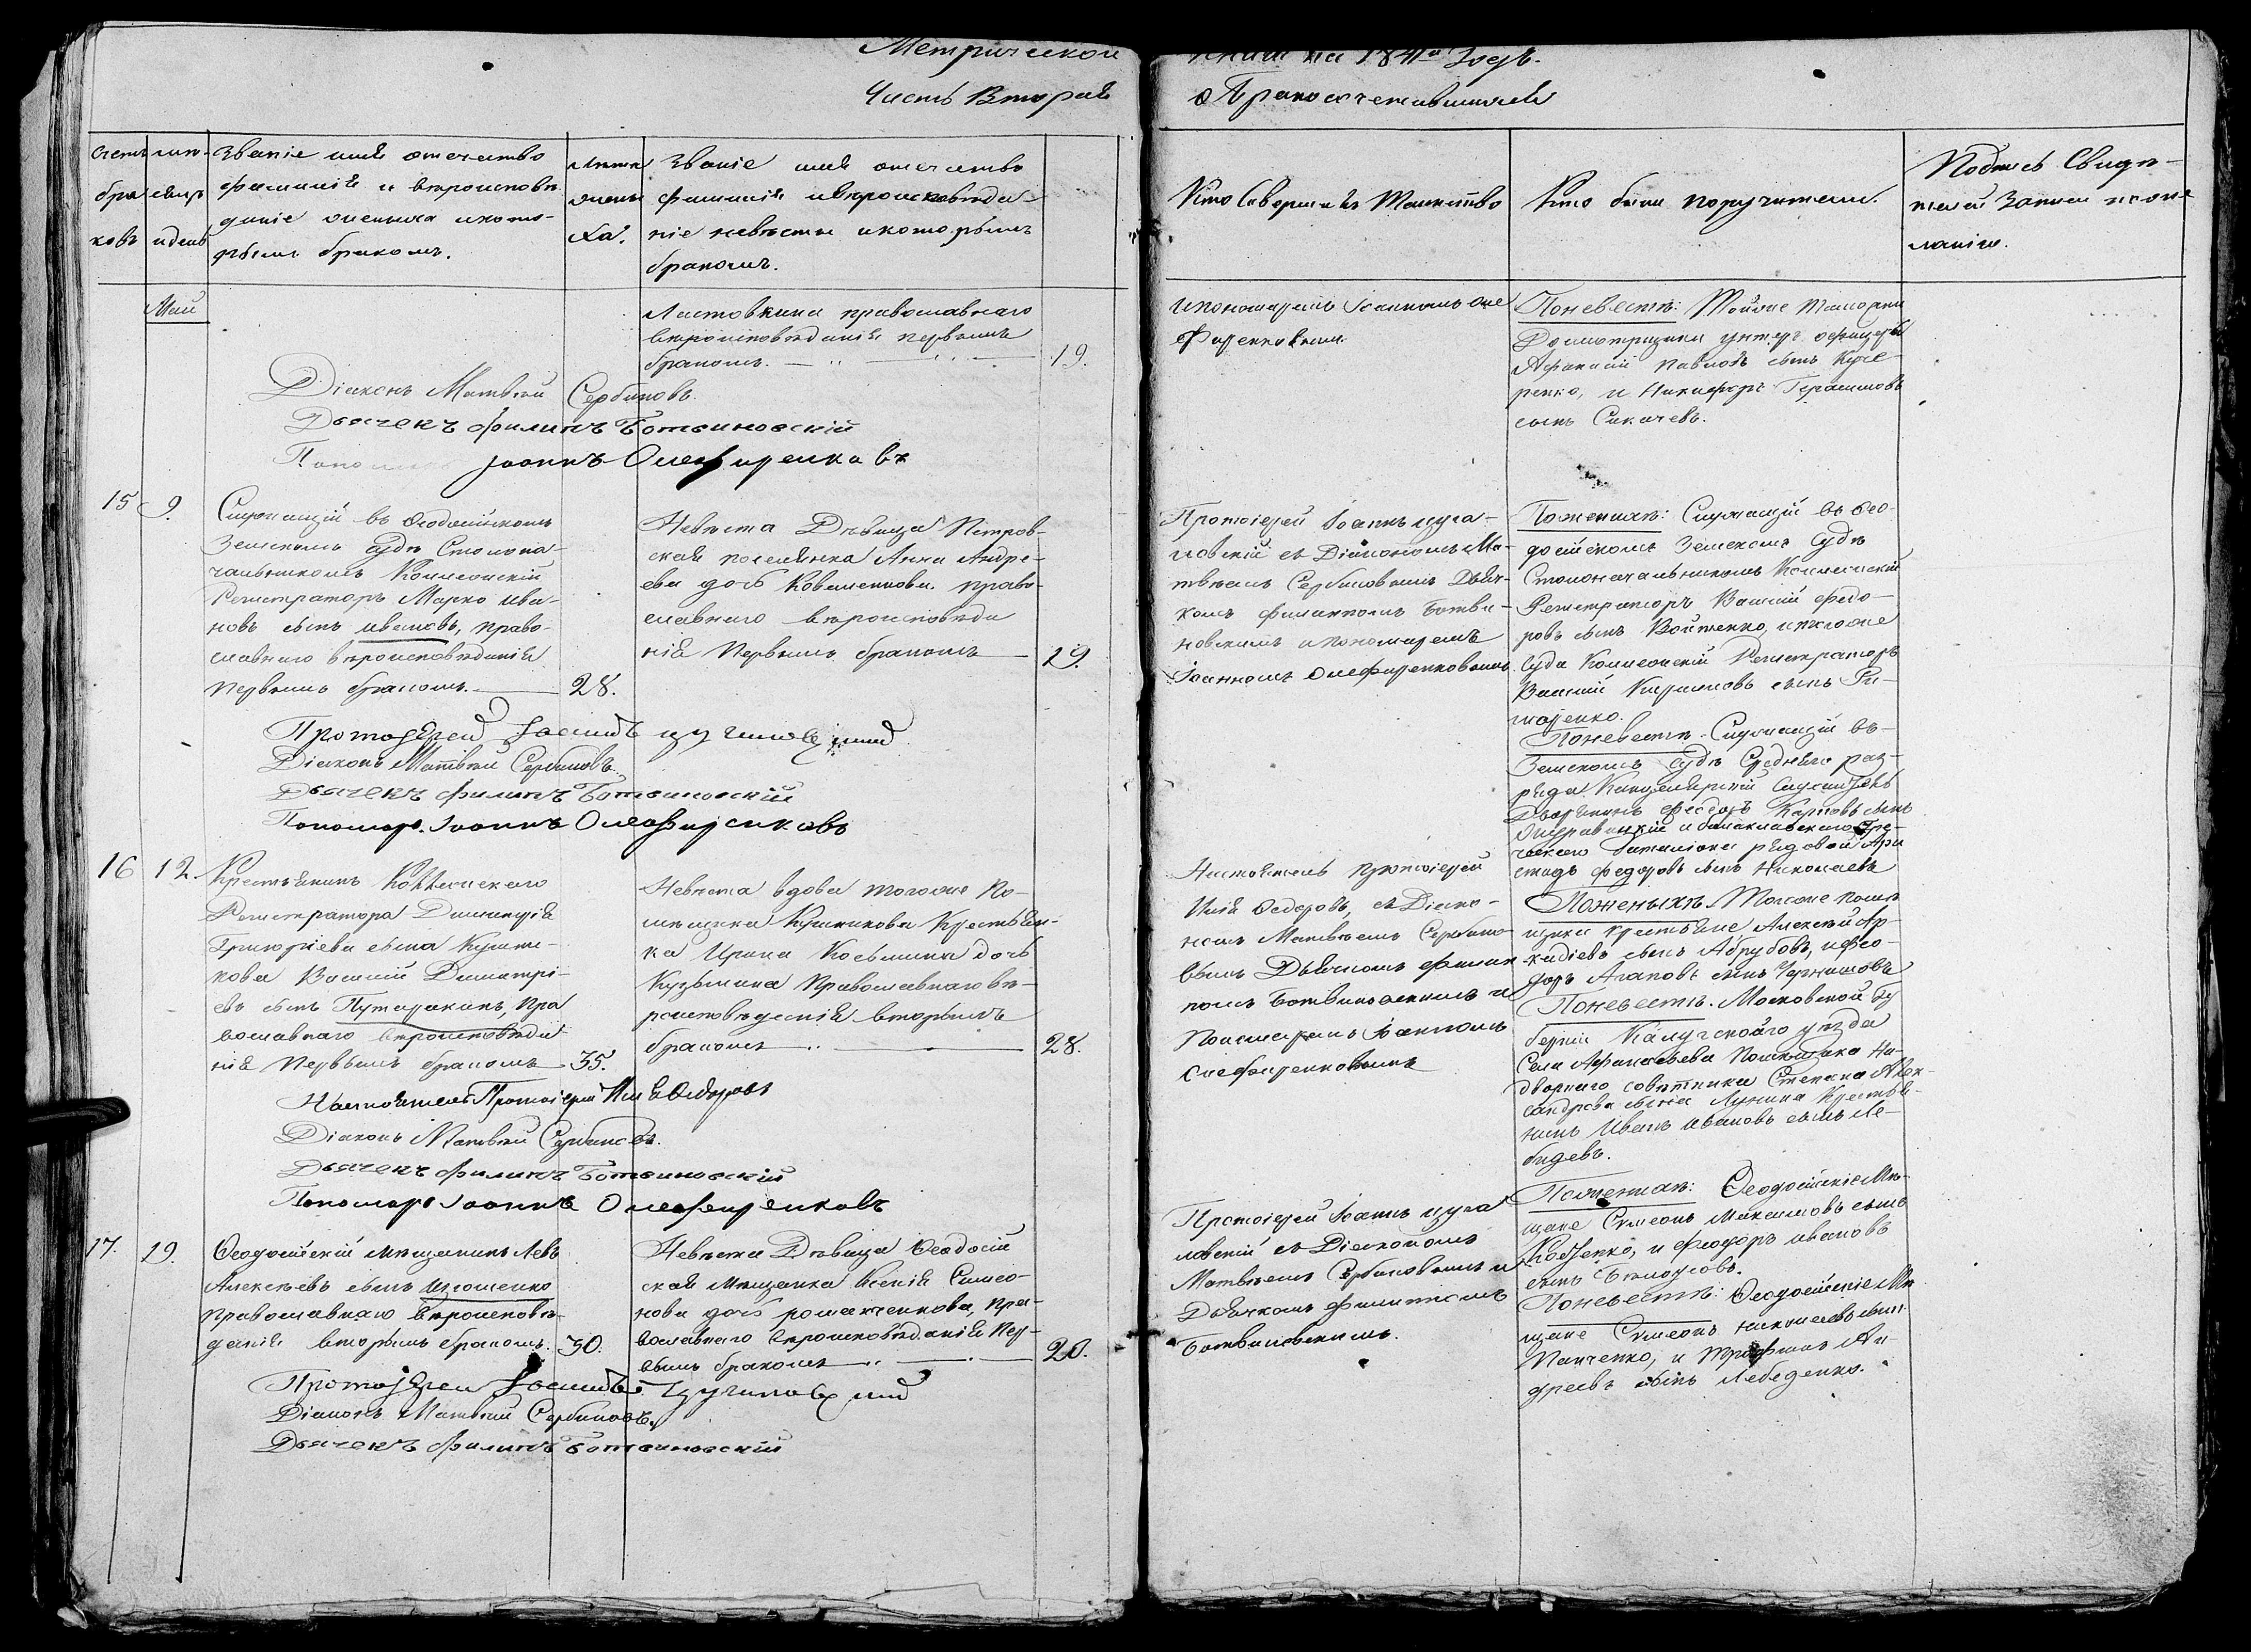 Метрической
Часть Вторая
книги на 1841й годъ.
о Бракосочетавшихся
Счетъ
бра
ковъ
мѣ-
сяцъ
и день
Званіе имя отечество
фамилія и вѣроисповѣ
даніе жениха и кото-
рымъ бракомъ.
Лѣта
жени
ха.
Званіе имя отечество
фамилія и вѣроисповѣда-
ніе невѣсты и которымъ
бракомъ.
Кто Совершалъ Таинство
Кто были поручители.
Подпись Свидѣ-
телей Записи по же
ланію.
Май
Ластовкина православнаго
вѣроисповѣданія первымъ
бракомъ. 19.
Діаконъ Матвѣй Сербиновъ.
Дьячекъ Филипъ Ботвиновскій
Іоаннъ Олефиренковъ
и пономаремъ Іоанномъ Оле
фиренковымъ
По невестѣ: Тойже Таможни
Досмотрщики унтеръ офицеры
Афанасій Павловъ сынъ Куче
ренко, и Никифоръ Герасимовъ
сынъ Сикачевъ.
15 9.
Служащій въ Ѳеодосійскомъ
Земскомъ Судѣ Столона-
чальникомъ Коллежскій
Регистраторъ Марко Ива-
новъ сынъ Ивановъ, право-
славнаго вѣроисповѣданія
первымъ бракомъ. 28.
Невѣста Дѣвица Петров-
ская поселянка Анна Андре-
ева дочь Коваленкова, право-
славнаго вѣроисповѣда
нія Первымъ бракомъ 19.
Протоіерей Іоаннъ Цуга-
ловскій съ Діакономъ Ма-
твѣемъ Сербиновымъ Дьяч-
комъ Филиппомъ Ботви-
новскимъ и пономаремъ
Іоанномъ Олефиренковымъ
По женихѣ: Служащій въ Ѳео-
досійскомъ Земскомъ Судѣ
Столоначальникомъ Коллежскій
Регистраторъ Василій Федо-
ровъ сынъ Войтенко, и того же
Суда Коллежскій Регистраторъ
Василій Кириловъ сынъ
По невестѣ. Служащій въ
Земскомъ Судѣ Средняго раз-
ряда Канцелярскій Служитель
Дворянинъ Феодоръ Карповъ сынъ
и Балаклавскаго Гре-
ческаго баталіона рядовой Ари
стидъ Федоровъ сынъ Николаевъ
Протоіерей
Діаконъ Матвѣй Сербиновъ.
Дьячекъ Филипъ Ботвиновскій
Пономарь Іоаннъ Олефиренковъ
16 12.
Крестьянинъ Коллежскаго
Регистратора Димитрія
Григоріева сына Кушни-
кова Василій Димитрі-
евъ сынъ Путаракинъ, Пра
вославнаго вѣроисповѣда
нія Первымъ бракомъ 35.
Невѣста вдова того же По-
мѣщика Кушникова Крестьян-
ка Ирина Косьмина дочь
Кузьмина Православнаго вѣ-
роисповѣданія вторымъ
бракомъ 28.
Настоятель Протоіерей
Илія Ѳедоровъ, съ Діако-
номъ Матвѣемъ Сербино-
вымъ Дьячкомъ Филип
помъ Ботвиновскимъ и
Пономаремъ Іоанномъ
Олефиренковымъ
По женихѣ. Того же помѣ
щика крестьяне Алексѣй Ар-
кадіевъ сынъ Абрубовъ, и Фео-
доръ Агаповъ сынъ Чернышовъ
По невестѣ. Московской Гу
берніи Калужскаго уѣзда
Села Афанасьева Помѣщика На-
дворнаго совѣтника Степана Алек-
сандрова сына Лунина Крестья-
нинъ Иванъ Ивановъ сынъ Ле-
бедевъ.
Настоятель Протоіерей Илія Ѳедоровъ
Діаконъ Матвѣй Сербиновъ.
Дьячекъ Филипъ Ботвиновскій
Пономарь Іоаннъ Олефиренковъ
17. 19.
Ѳеодосійскій мѣщанинъ Левъ
Алексѣевъ сынъ Игошенко
Православнаго вѣроисповѣ-
данія вторымъ бракомъ. 30.
Невѣста Дѣвица Ѳеодосій
ская мѣщанка Ксенія Симео-
нова дочь Романченкова, Пра-
вославнаго вѣроисповѣданія Пер-
вымъ бракомъ 20.
Протоіерей Іоаннъ Цуга
ловскій съ Діакономъ
Матвѣемъ Сербиновымъ и
Дьячкомъ Филиппомъ
Ботвиновскимъ.
По женихѣ: Ѳеодосійскіе Мѣ-
щане Симеонъ Максимовъ сынъ
и Феодоръ Ивановъ
сынъ Бѣлоусовъ.
По невестѣ: Ѳеодосійскіе Мѣ
щане Симеонъ Николаевъ сынъ
Панченко, и Трофимъ Ан-
дреевъ сынъ Лебеденко.
Протоіерей
Діаконъ Матвѣй Сербиновъ.
Дьячекъ Филипъ Ботвиновскій